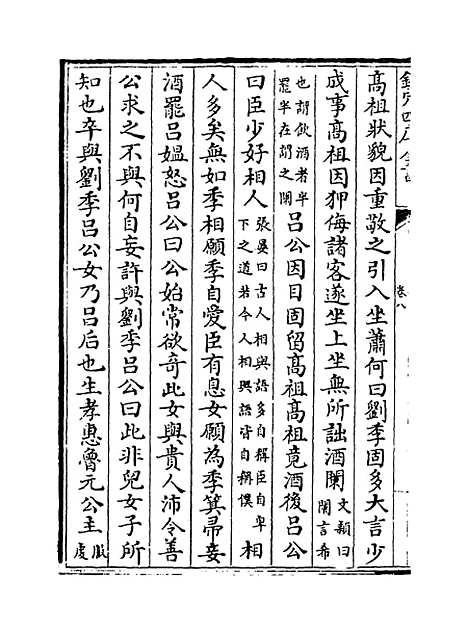 欽定四庫全書
卷八
高祖狀貌因重敬之引入坐蕭何曰劉季固多大言少
成事高祖因狎侮諸客遂坐上坐無所詘酒闌文穎曰闌言希
也謂飲酒者半罷半在謂之闌呂公因目固留髙祖髙祖竟酒後呂公
曰臣少好相人張晏曰古人相與語多自稱臣自卑下之道若今人相與語皆自稱僕相
人多矣無如季相願季自愛臣有息女願為季箕帚妾
酒罷呂媼怒呂公曰公始常欲奇此女與貴人沛令善
公求之不與何自妄許與劉季呂公曰此非兒女子所
知也卒與劉季呂公女乃呂后也生孝惠魯元公主服虔